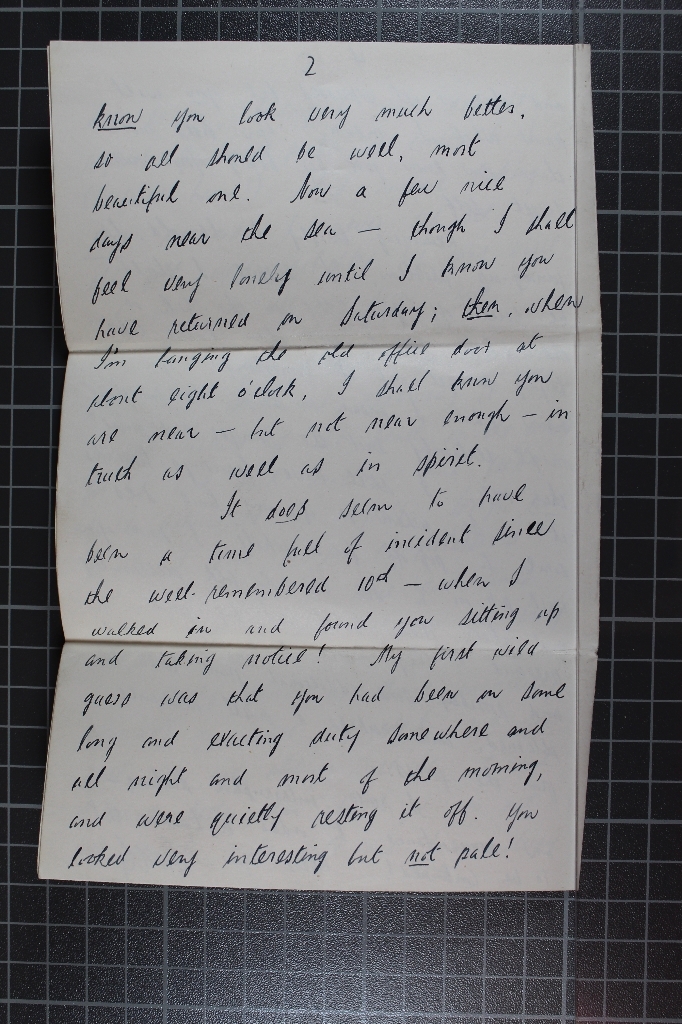 2
know you look very much better,
so all should be well, most
beautiful one. Now a few nice
days near the sea — though I shall
feel very lonely until I know you
have returned on Saturday; then, when
I'm banging the old office door at
about eight o'clock, I shall know you
are near — but not near enough — in
truth as well as in spirit.
It does seem to have
been a time full of incident since
the well-remembered 10d — when I
walked in and found you sitting up
and taking notice! My first wild
guess was that you had been on some
long and exacting duty somewhere and
all night and most of the morning,
and were quietly resting it off. You
looked very interesting but not pale!